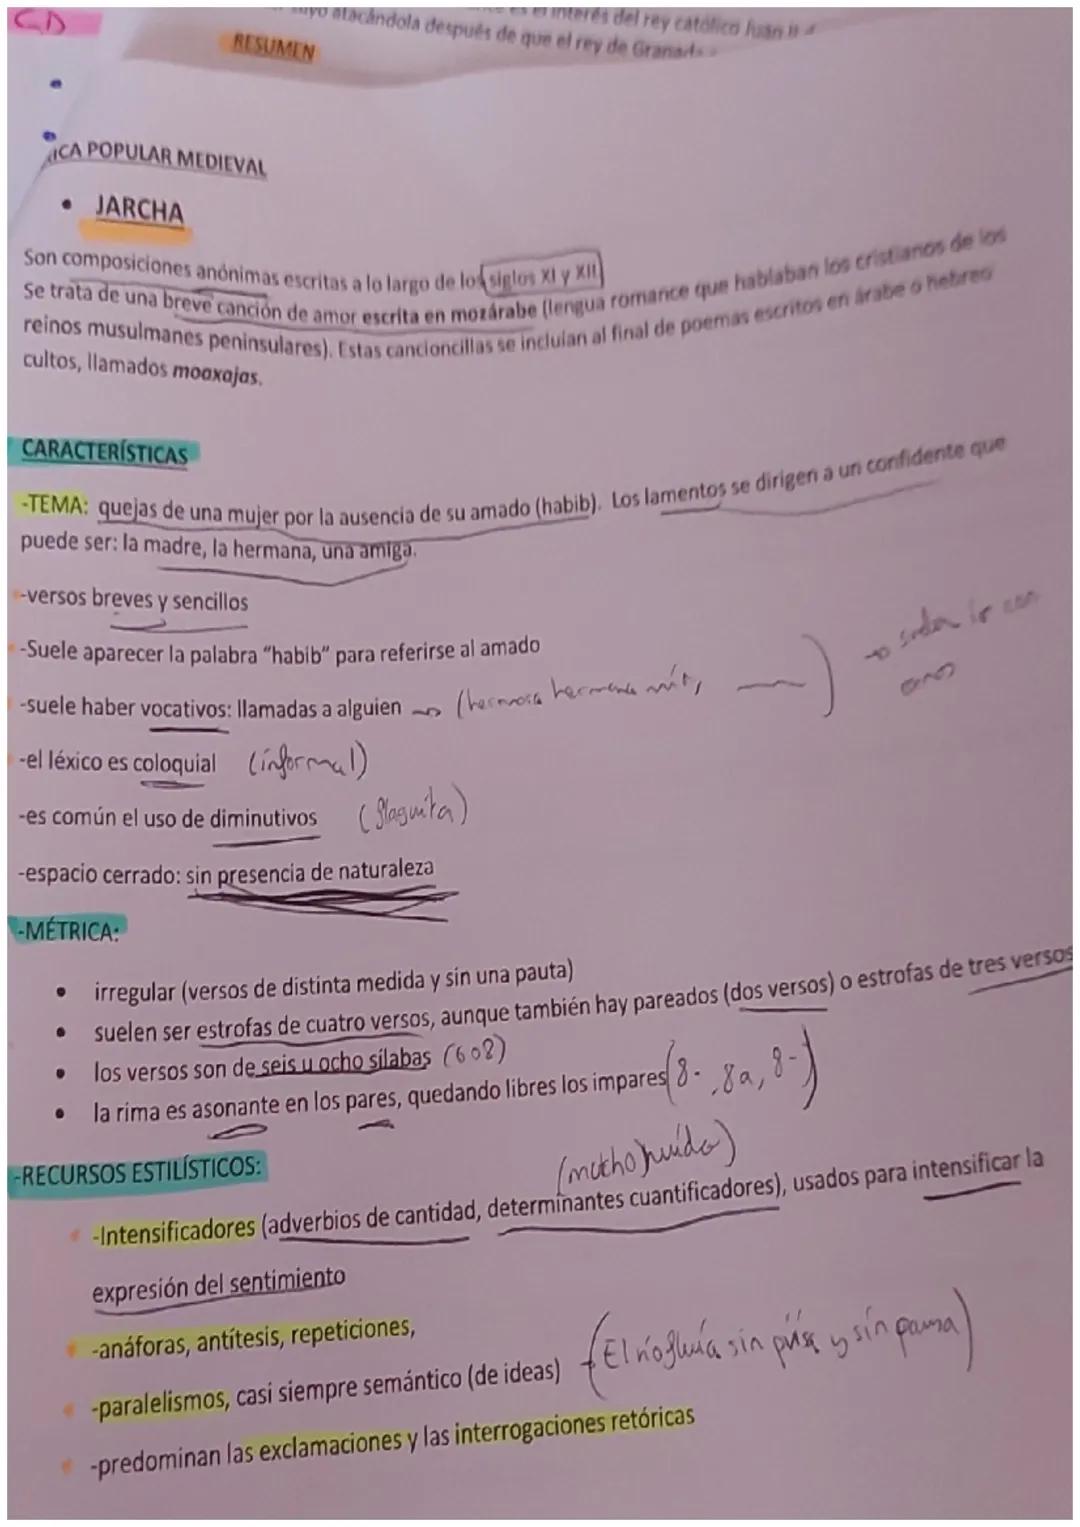 CD
atacándola después de que el rey de Granada
es el interés del rey católico Juan II
RESUMEN
ICA POPULAR MEDIEVAL
• JARCHA
Son composiciones anónimas escritas a lo largo de los siglos XI y XII
Se trata de una breve canción de amor escrita en mozárabe (lengua romance que hablaban los cristianos de los
reinos musulmanes peninsulares). Estas cancioncillas se incluían al final de poemas escritos en árabe o hebreo
cultos, llamados moaxajas.
CARACTERÍSTICAS
-TEMA: quejas de una mujer por la ausencia de su amado (habib). Los lamentos se dirigen a un confidente que
puede ser: la madre, la hermana, una amiga.
-versos breves y sencillos
-Suele aparecer la palabra "habib" para referirse al amado
-suele haber vocativos: llamadas a alguien → (hermosa hermana mía, ) →
-el léxico es coloquial (informal)
-es común el uso de diminutivos
-espacio cerrado: sin presencia de naturaleza
-MÉTRICA:
• irregular (versos de distinta medida y sin una pauta)
• suelen ser estrofas de cuatro versos, aunque también hay pareados (dos versos) o estrofas de tres versos
• los versos son de seis u ocho sílabas (6 o 8)
• la rima es asonante en los pares, quedando libres los impares (8- , 8a, 8-)
-RECURSOS ESTILÍSTICOS:
(mucho ruido)
-Intensificadores (adverbios de cantidad, determinantes cuantificadores), usados para intensificar la
expresión del sentimiento
-anáforas, antítesis, repeticiones,
-paralelismos, casi siempre semántico (de ideas) → (El río fluía sin prisa y sin pausa)
-predominan las exclamaciones y las interrogaciones retóricas